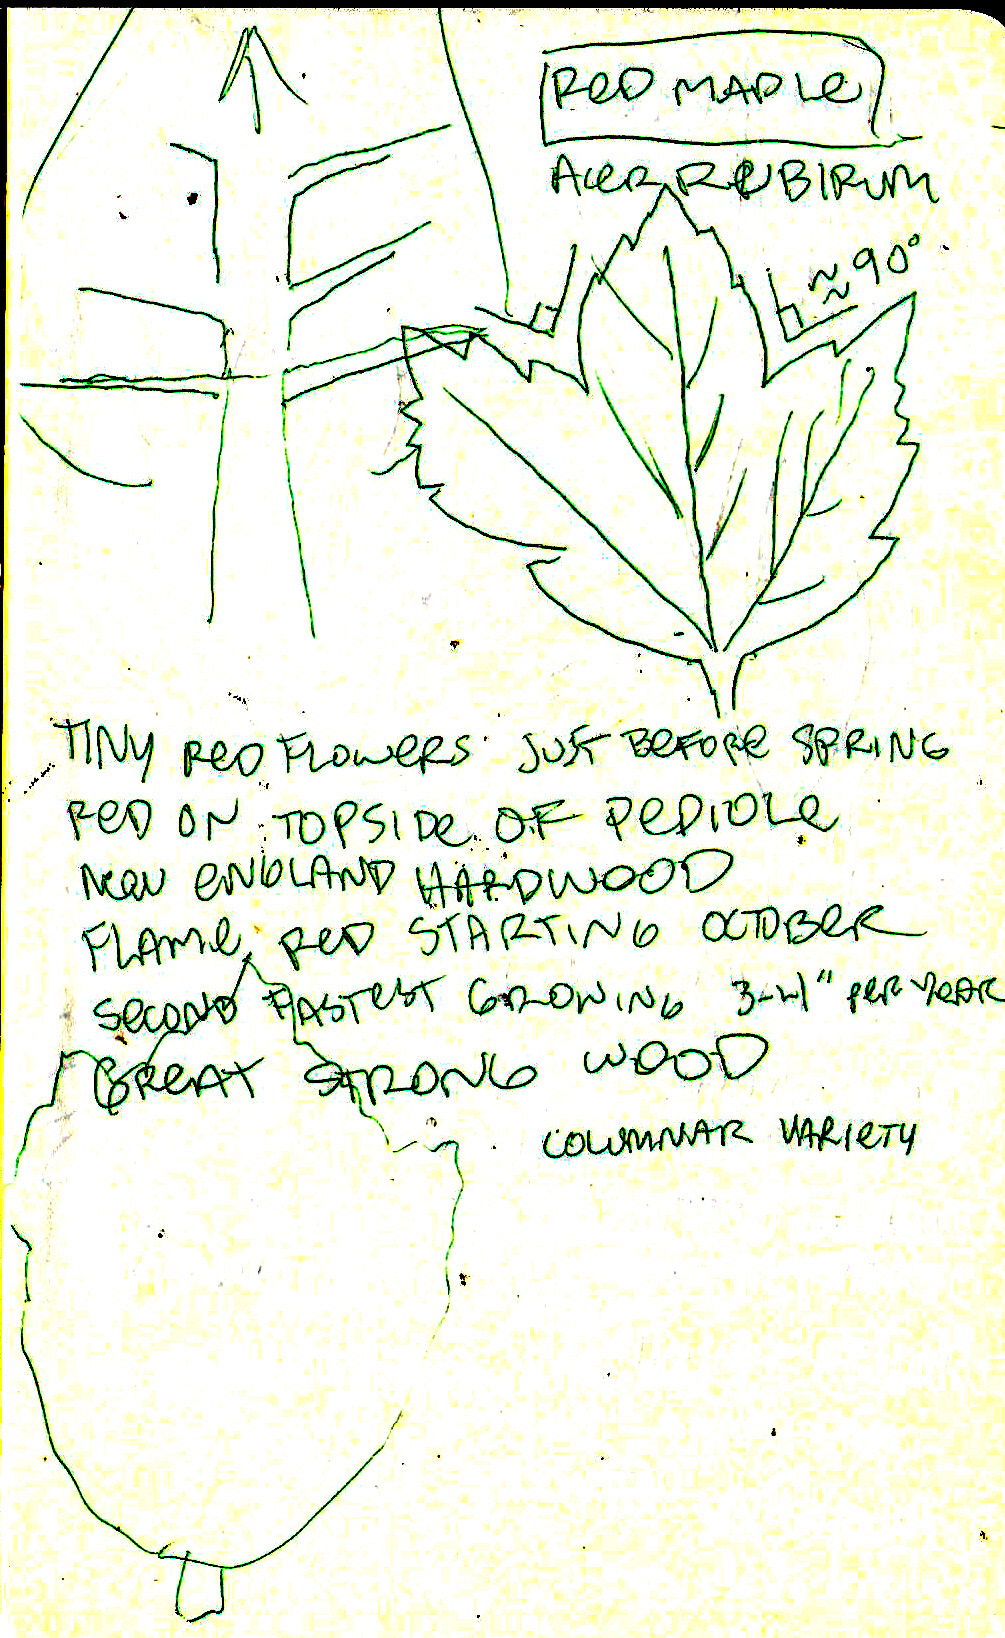 RED MAPLE
ACER RUBIRUM
≈90°
TINY RED FLOWERS JUST BEFORE SPRING
RED ON TOPSIDE OF PEDIOLE
NEW ENGLAND HARDWOOD
FLAME RED STARTING OCTOBER
SECOND FASTEST GROWING 3-4" PER YEAR
GREAT STRONG WOOD
COLUMNAR VARIETY